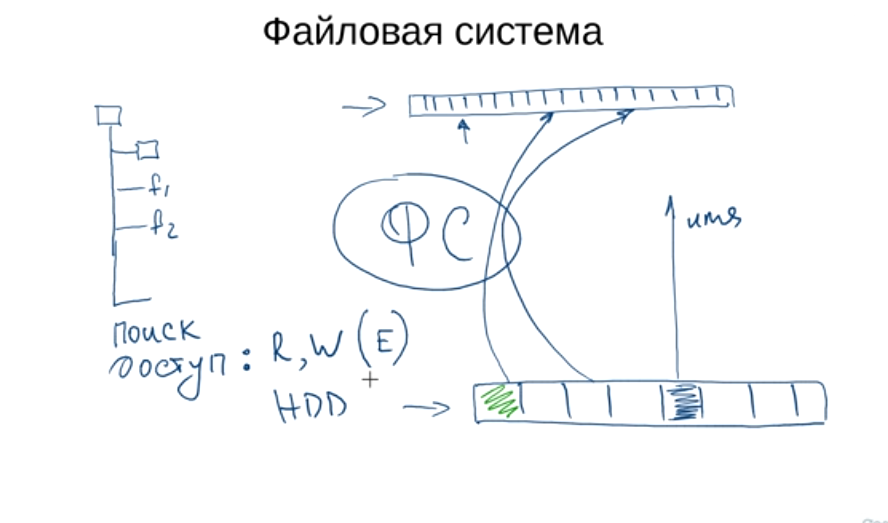 Файловая система
f1
f2
ФС
имя
поиск
доступ: R, W (E)
HDD